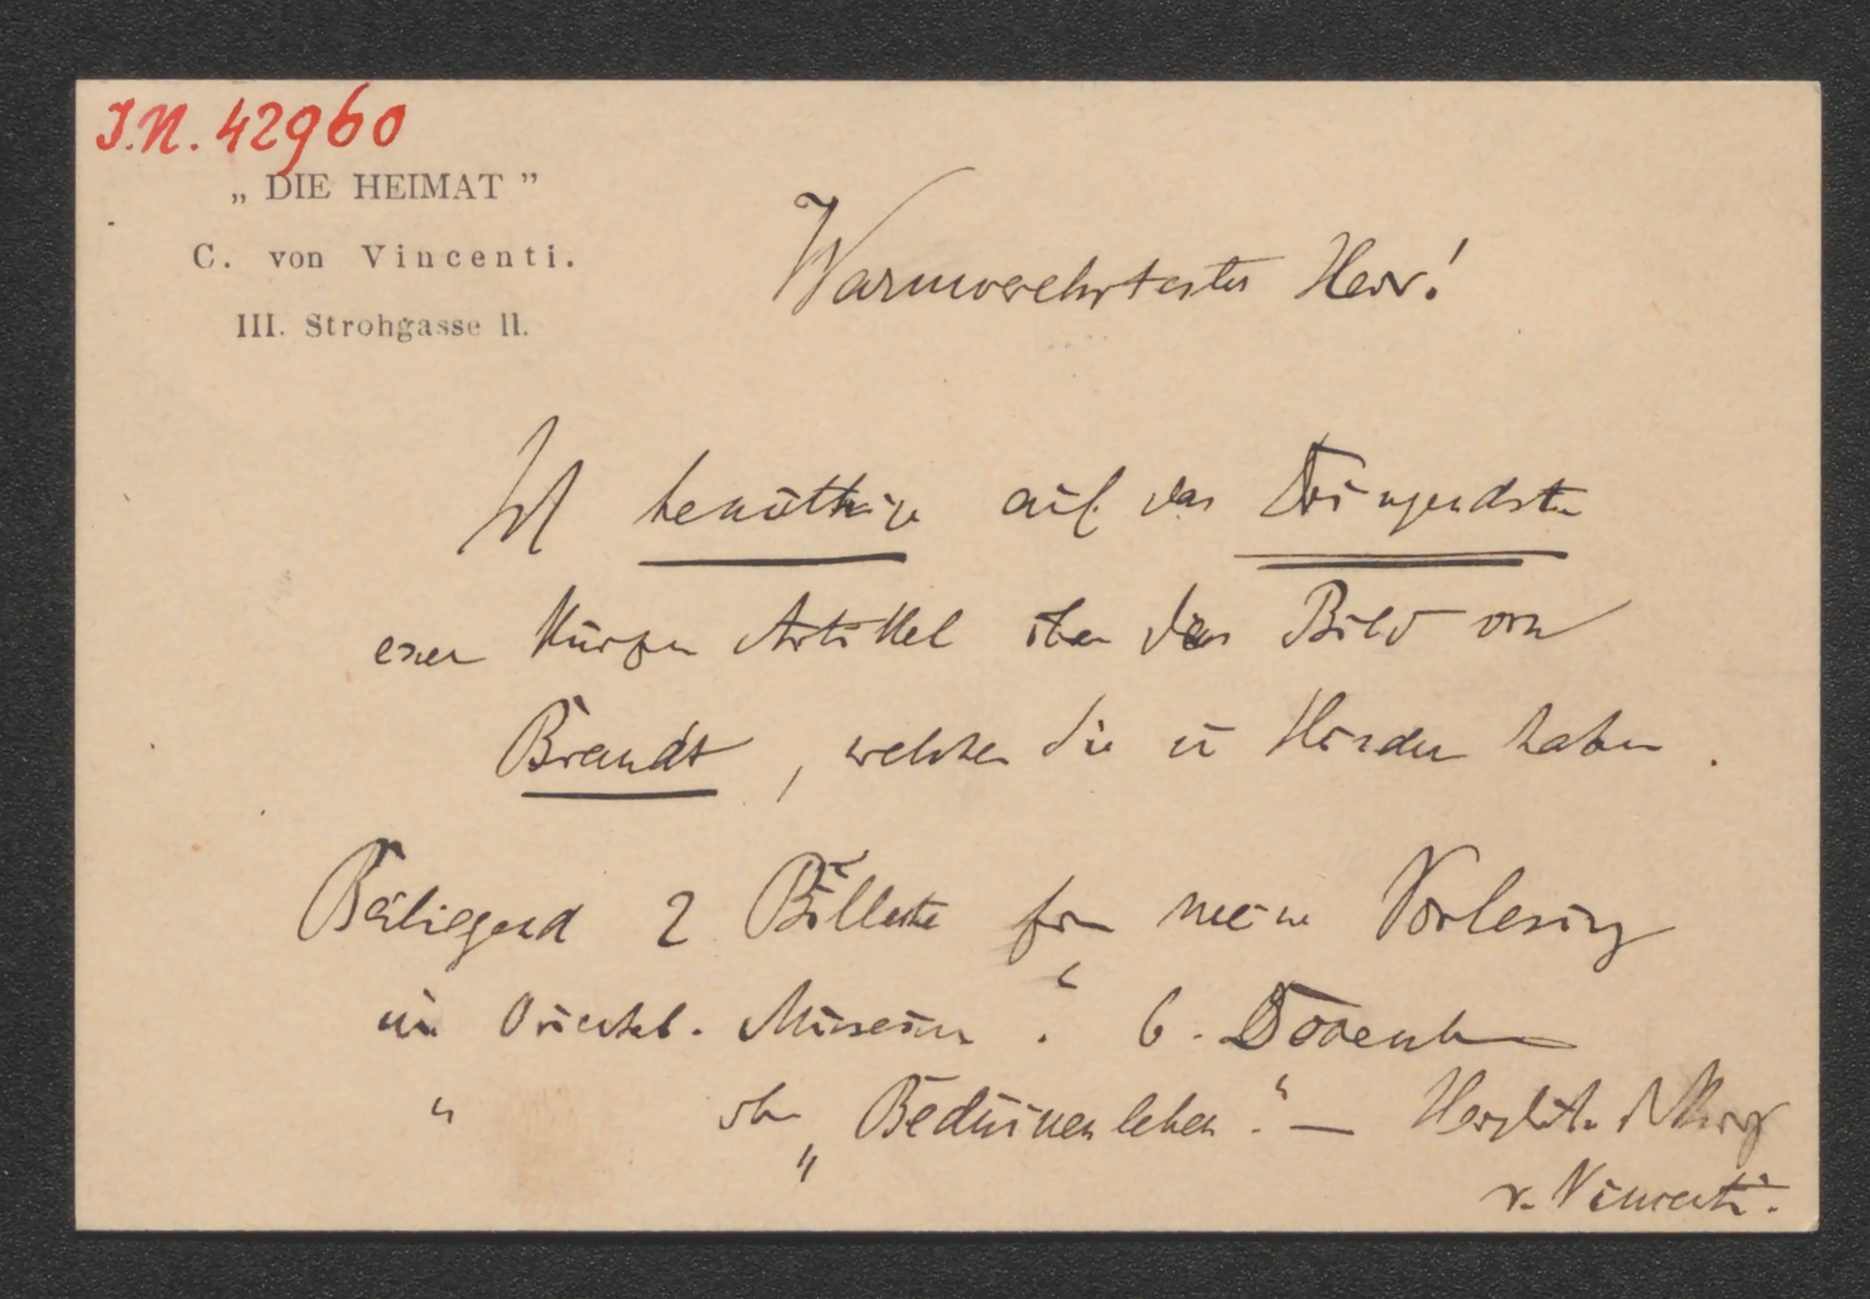 I.N. 42960
„ DIE HEIMAT ”
C. von Vincenti.
III. Strohgasse 11.
Warmverehrtester Herr!
Ich benöthige auf das Dringendste
einen kurzen Artikel über das Bild von
Brandt, welchen Sie in Händen haben.
Beiliegend 2 Billette für meine Vorlesung
im Oriental. Museum. 6. Dezember
" über „Beduinenleben." — Herzlichst
v. Vincenti.